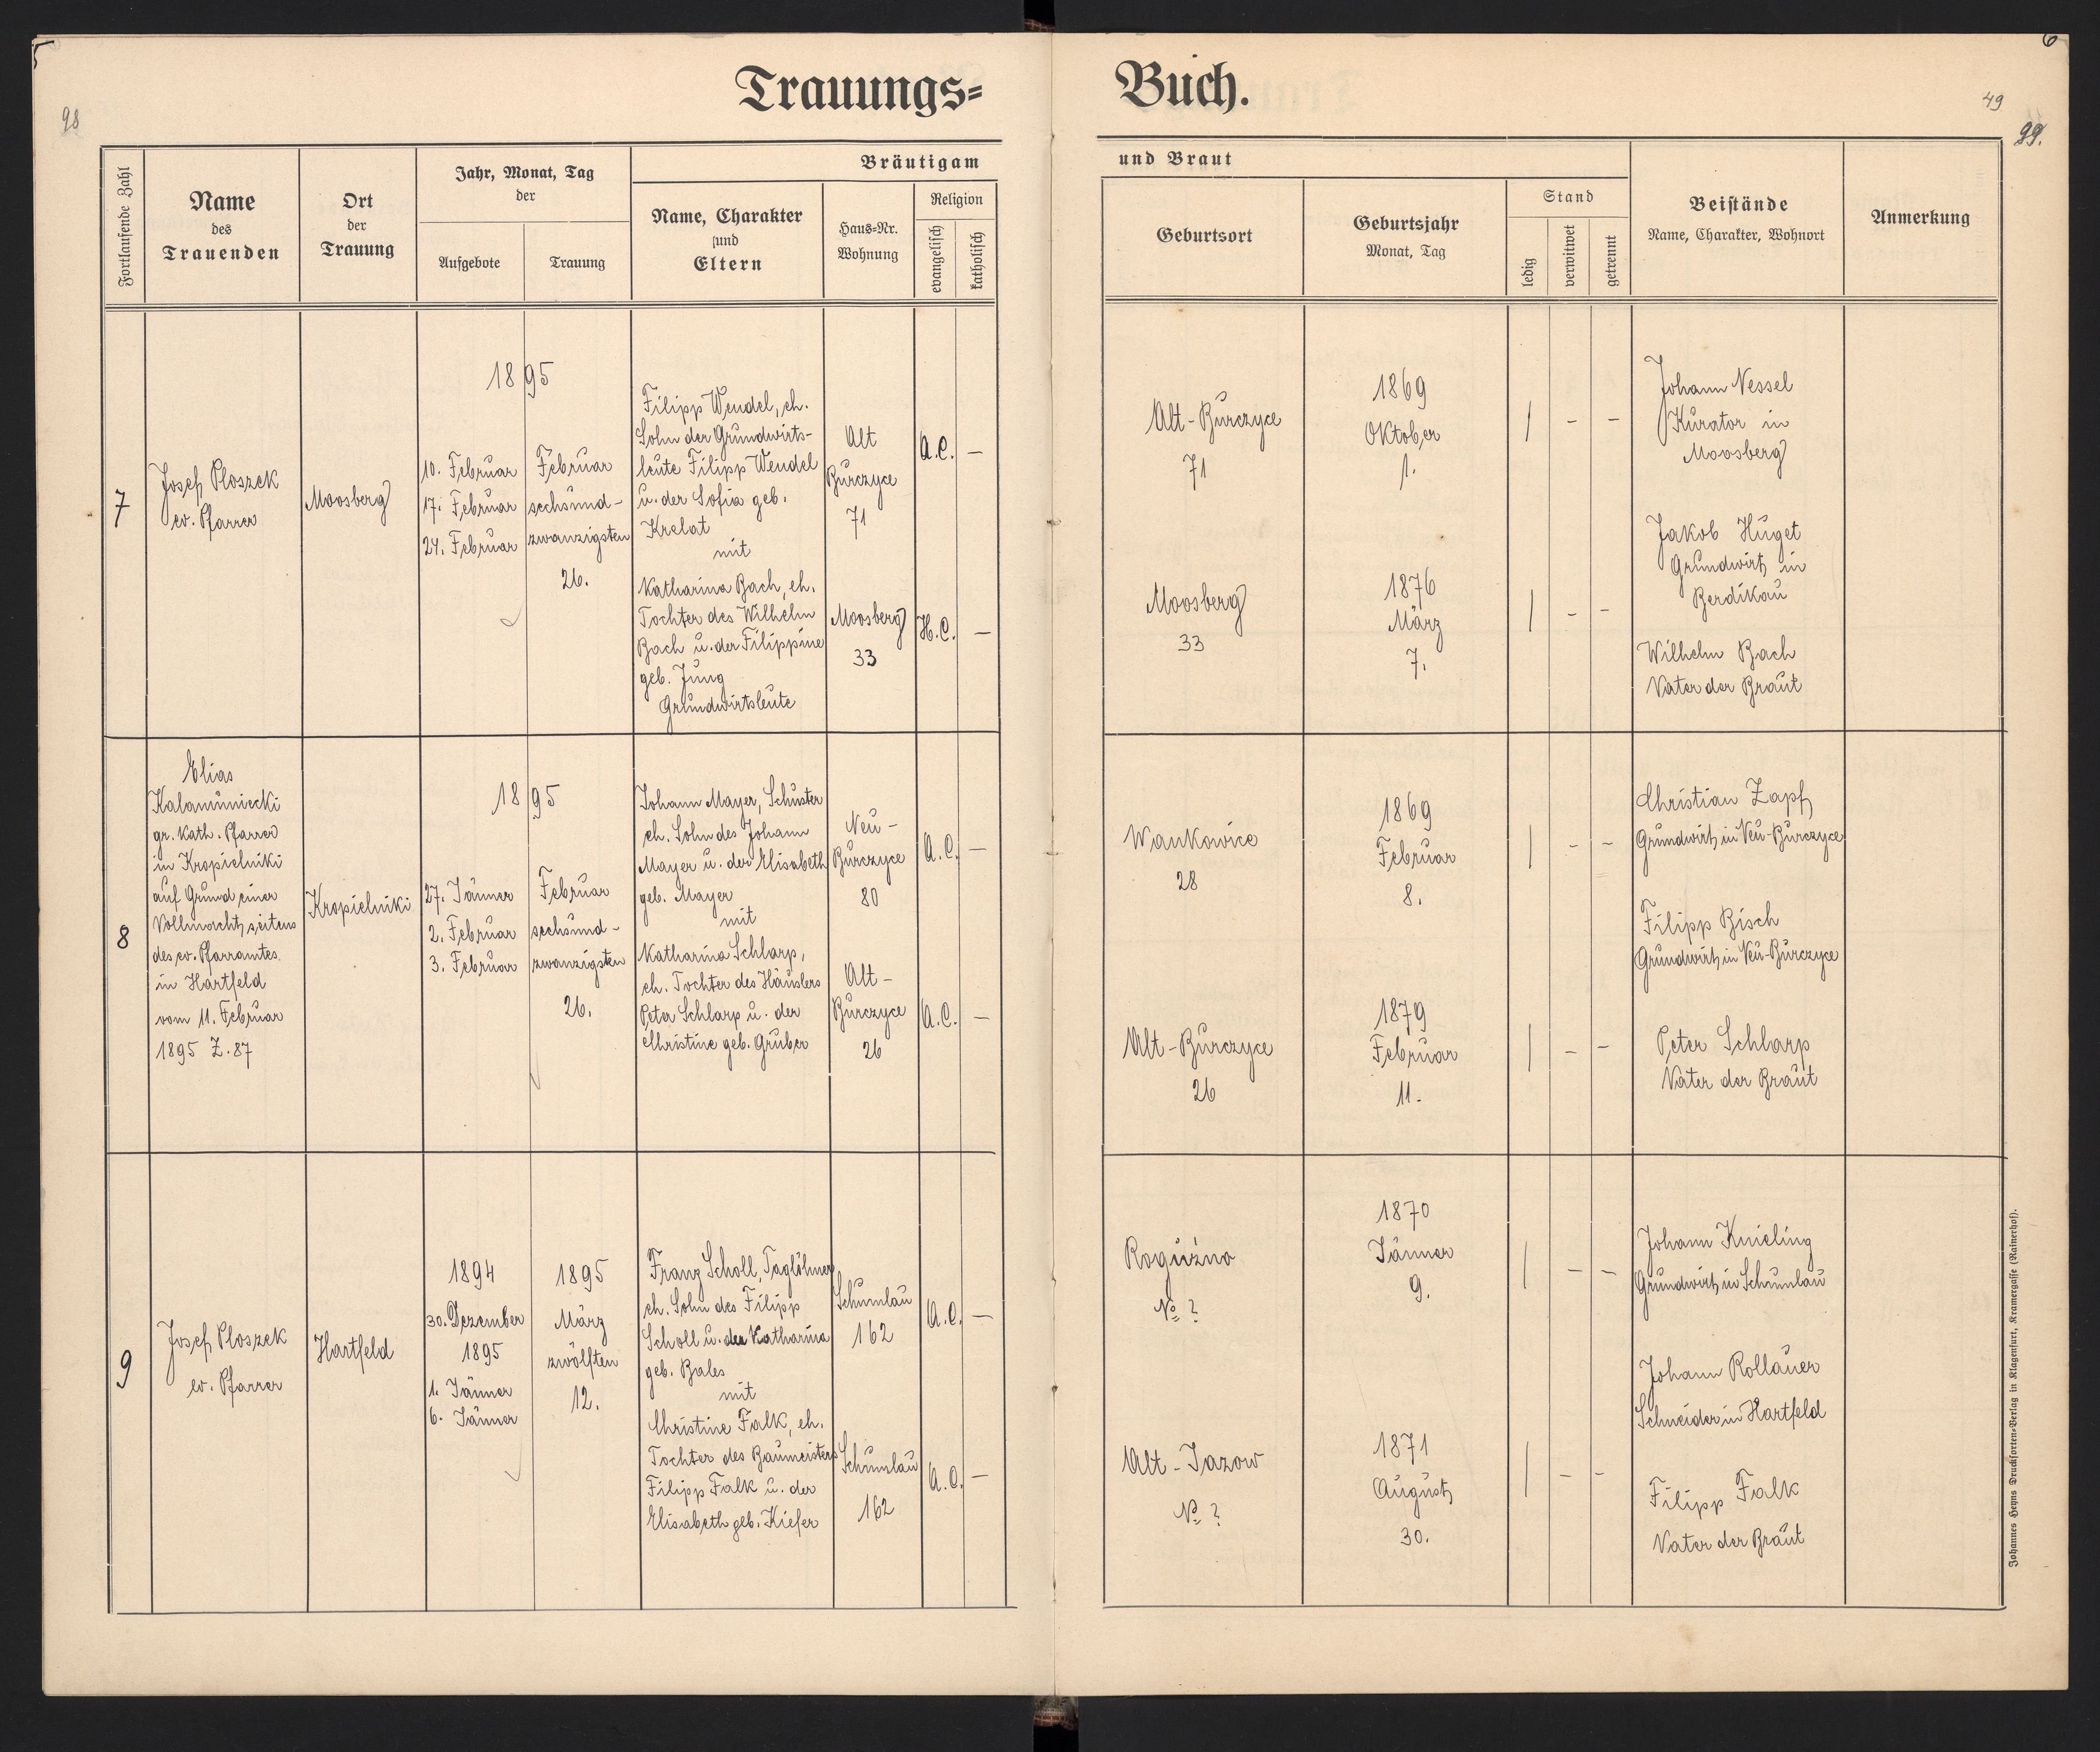 5
6
98
49
99.
Trauungs=
Buch.
Fortlaufende Zahl
Name
des
Trauenden
Ort
der
Trauung
Jahr, Monat, Tag
der
Aufgebote
Trauung
Bräutigam
Name, Charakter
und
Eltern
Haus-Nr.
Wohnung
Religion
evangelisch
katholisch
und Braut
Geburtsort
Geburtsjahr
Monat, Tag
Stand
ledig
verwitwet
getrennt
Beistände
Name, Charakter, Wohnort
Anmerkung
7
Josef Ploszek
ev. Pfarrer
Moosberg
1895
10. Februar
17. Februar
24. Februar
Februar
sechsund-
zwanzigsten
26.
Filipp Wendel, eh.
Sohn der Grundwirts-
leute Filipp Wendel
u. der Sofia geb.
Krelat
mit
Katharina Bach, eh.
Tochter des Wilhelm
Bach u. der Filippine
geb. Jung
Grundwirtsleute
Alt
Burczyce
71
A.C. –
Moosberg
33
H.C. –
Alt-Burczyce
71
1869
Oktober
1.
| – –
Moosberg
33
1876
März
7.
| – –
Johann Nessel
Kurator in
Moosberg
Jakob Huget
Grundwirt in
Berdikau
Wilhelm Bach
Vater der Braut
8
Elias
Kalamuniecki
gr. kath. Pfarrer
in Kropielniki
auf Grund einer
Vollmacht seitens
des ev. Pfarramtes
in Hartfeld
vom 11. Februar
1895 Z. 87
Kropielniki
1895
27. Jänner
2. Februar
3. Februar
Februar
sechsund-
zwanzigsten
26.
Johann Mayer, Schuster
eh. Sohn des Johann
Mayer u. der Elisabeth
geb. Mayer
mit
Katharina Schlarp,
eh. Tochter des Häuslers
Peter Schlarp u. der
Christine geb. Gruber
Neu-
Burczyce
80
A.C. –
Alt-
Burczyce
26
A.C. –
Wankowice
28
1869
Februar
8.
| – –
Alt-Burczyce
26
1879
Februar
11.
| – –
Christian Zapf
Grundwirt in Neu-Burczyce
Filipp Bisch
Grundwirt in Neu-Burczyce
Peter Schlarp
Vater der Braut
9
Josef Ploszek
ev. Pfarrer
Hartfeld
1894
30. Dezember
1895
1. Jänner
6. Jänner
1895
März
zwölften
12.
Franz Scholl, Taglöhner
eh. Sohn des Filipp
Scholl u. der Katharina
geb. Bales
mit
Christine Falk, eh.
Tochter des Baumeisters
Filipp Falk u. der
Elisabeth geb. Kiefer
Schumlau
162
A.C. –
Schumlau
162
A.C. –
Roguźno
No ?
1870
Jänner
9.
| – –
Alt-Jazow
No ?
1871
August
30.
| – –
Johann Knieling
Grundwirt in Schumlau
Johann Rollauer
Schneider in Hartfeld
Filipp Falk
Vater der Braut
Johannes Heyns Drucksorten-Verlag in Klagenfurt, Kramergasse (Rainerhof).